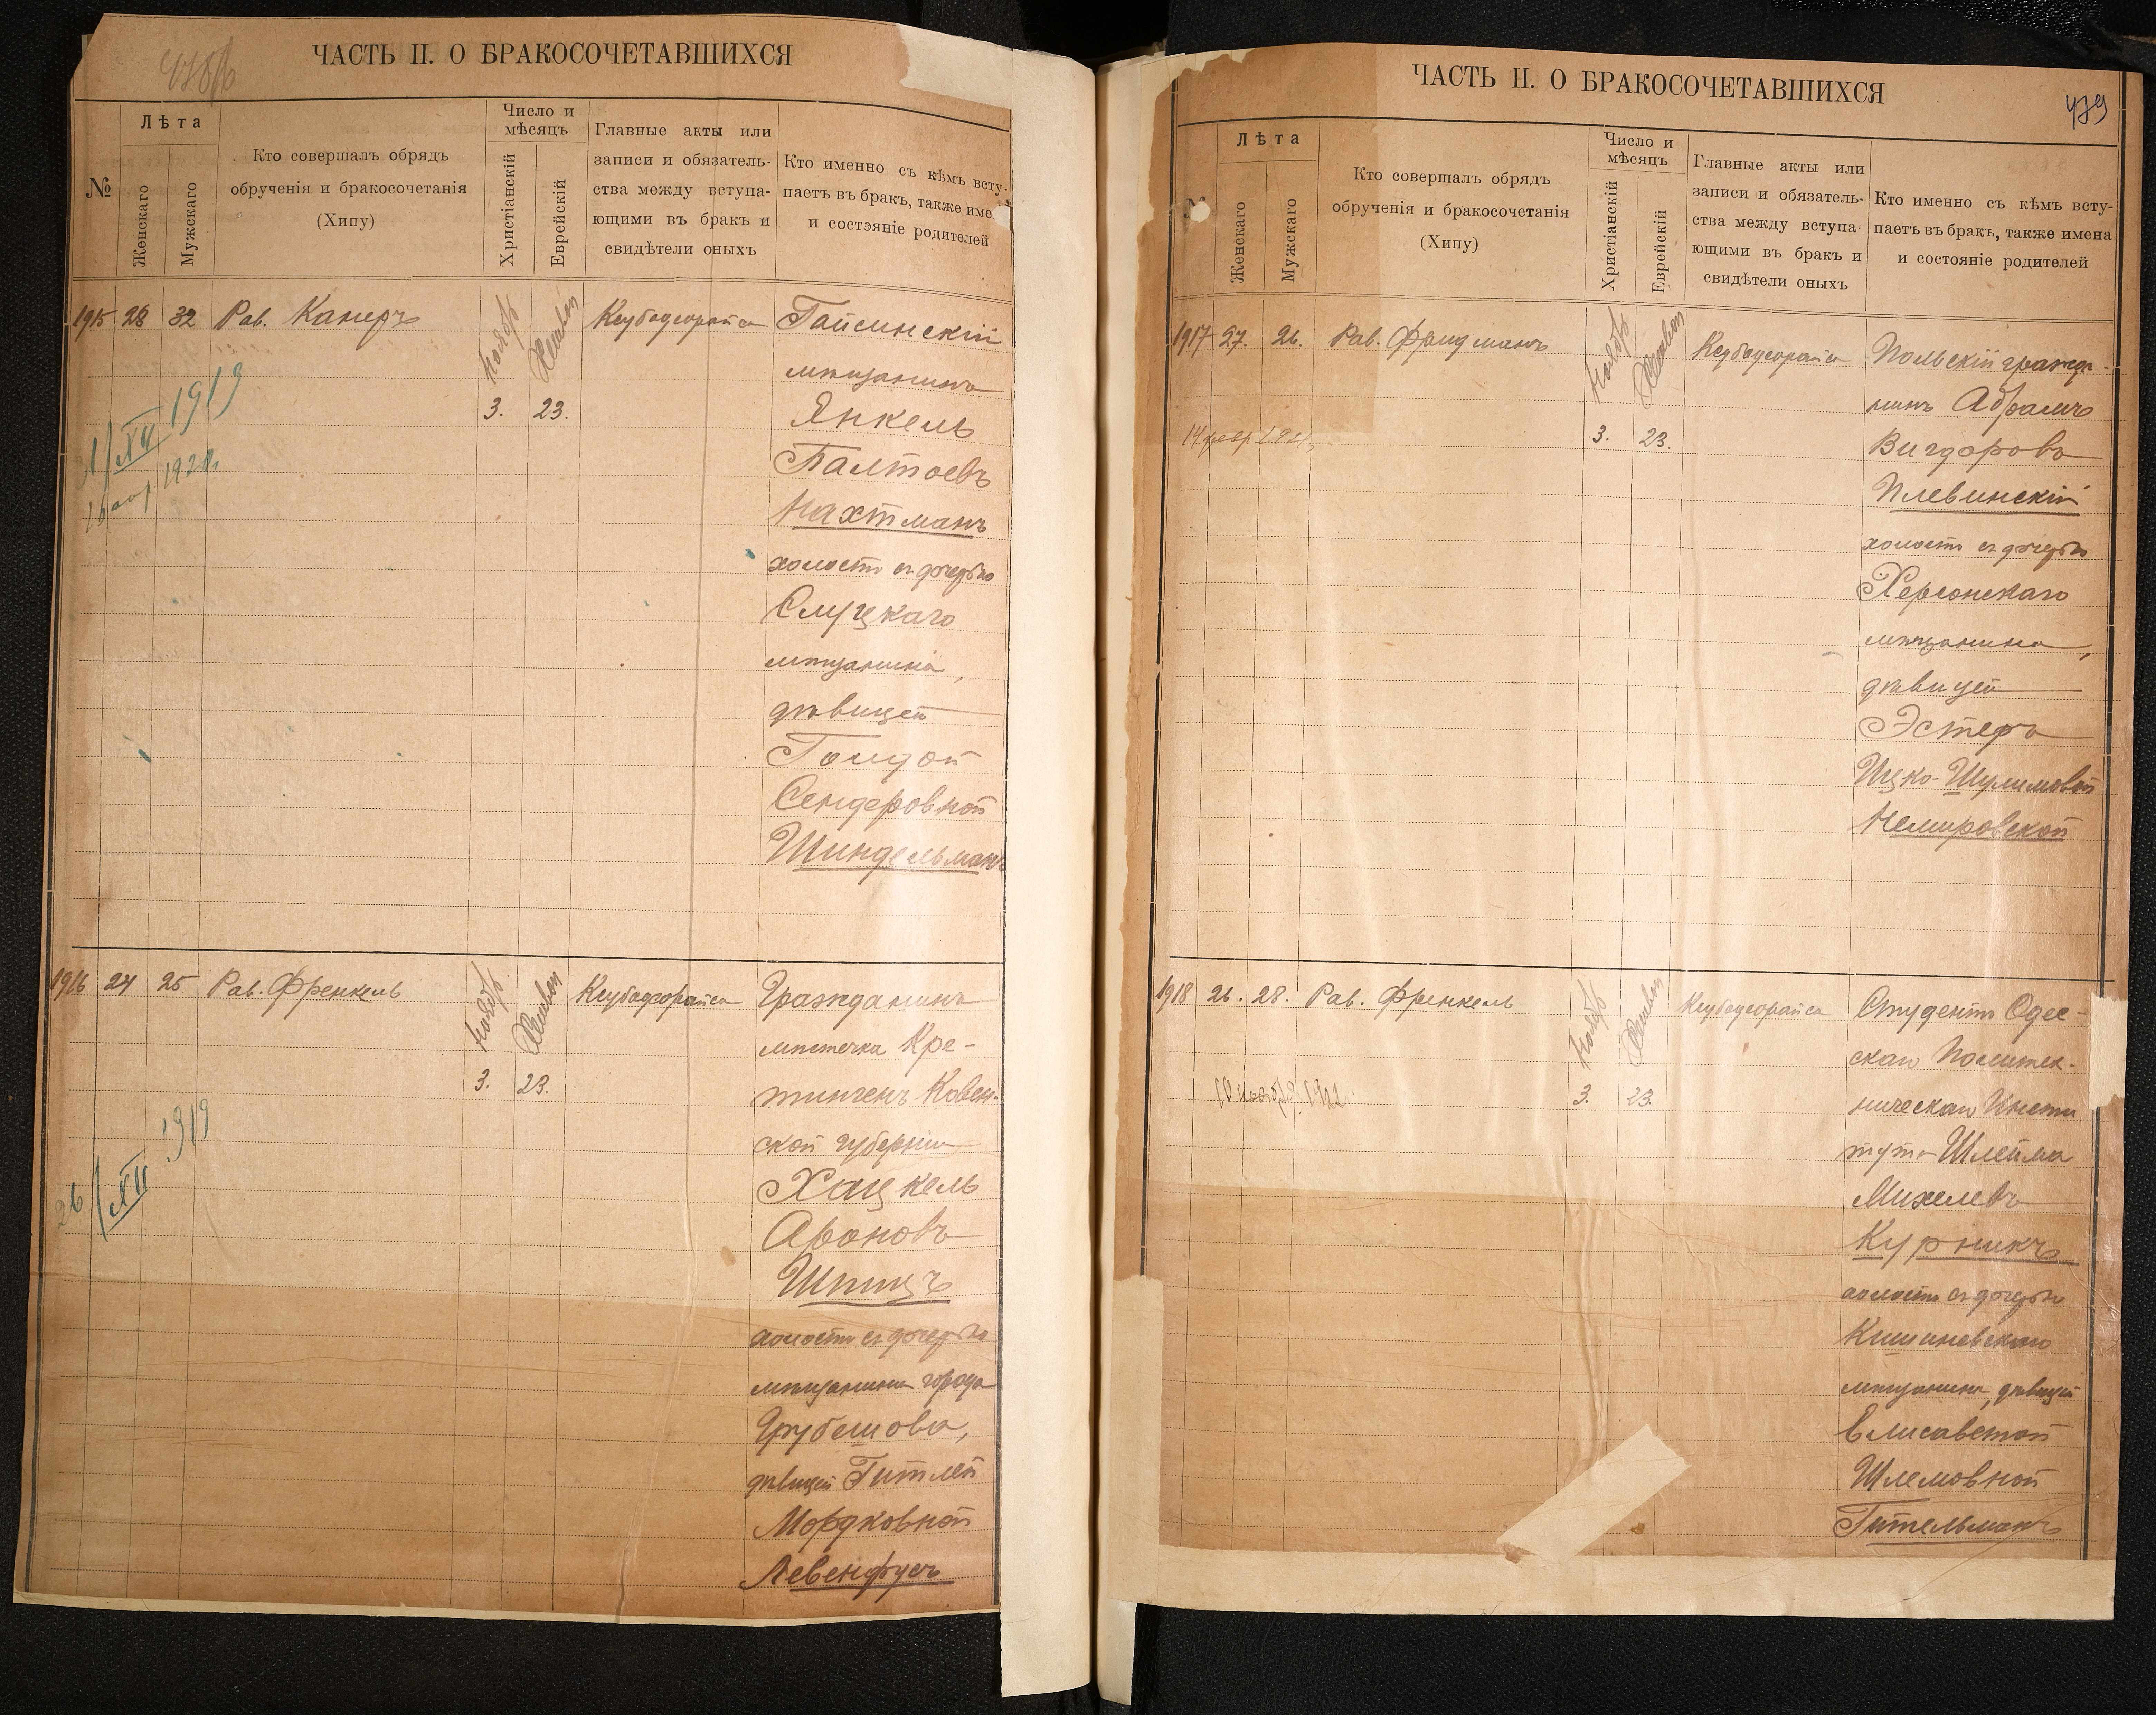 ЧАСТЬ II. О БРАКОСОЧЕТАВШИХСЯ
№
Лѣта
Женскаго
Мужскаго
Кто совершалъ обрядъ
обрученія и бракосочетанія
(Хипу)
Число и
мѣсяцъ
Христіанскій
Еврейскій
Главные акты или
записи и обязатель-
ства между вступа-
ющими въ бракъ и
свидѣтели оныхъ
Кто именно съ кѣмъ всту-
паетъ въ бракъ, также име
и состояніе родителей
1915 28 32 Рав. Канеръ
Ноябрь
3.
Хешвон
23.
Гайсинскій
мѣщанинъ
Янкель
Палтоевъ
Нахтманъ
холостъ съ дочерью
Слуцкаго
мѣщанина,
дѣвицей
Голдой
Сендеровной
Шиндельманъ
1/XII 1919
1916 24 25 Рав. Френкель
Ноябрь
3.
Хешвон
23.
Гражданинъ
мѣстечка Кре-
тингенъ Ковен-
ской губерніи
Хацкель
Ароновъ
Шпицъ
холостъ съ дочерью
мѣщанина города
Грубешова,
дѣвицей Гитлей
Мордковной
Левенфусъ
26/XII 1919
ЧАСТЬ II. О БРАКОСОЧЕТАВШИХСЯ
479
Лѣта
Женскаго
Мужскаго
Кто совершалъ обрядъ
обрученія и бракосочетанія
(Хипу)
Число и
мѣсяцъ
Христіанскій
Еврейскій
Главные акты или
записи и обязатель-
ства между вступа-
ющими въ бракъ и
свидѣтели оныхъ
Кто именно съ кѣмъ всту-
паетъ въ бракъ, также имена
и состояніе родителей
1917 27. 26. Рав. Фридманъ
Ноябрь
3.
Хешвон
23.
Польскій гражда-
нинъ Абрамъ
Вигдоровъ
Плевинскій
холостъ съ дочерью
Херсонскаго
мѣщанина,
дѣвицей
Эстеръ
Ицко-Шулимовой
Немировской
14 февр.
1918 26. 28. Рав. Френкель
Ноябрь
3.
Хешвон
23.
Студентъ Одес-
скаго Политех-
ническаго Инсти
тута Шлейма
Михелевъ
Курникъ
холостъ съ дочерью
Кишиневскаго
мѣщанина, дѣвицей
Елисаветой
Шлемовной
Гительманъ
10 ноябр. 1922